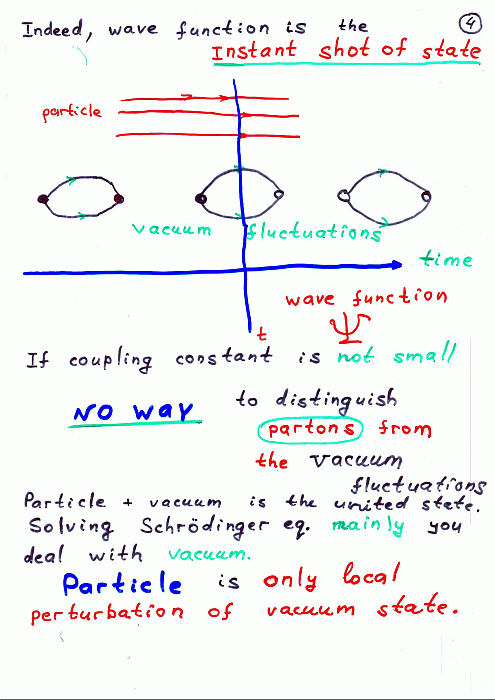 Indeed, wave function is the
4
Instant shot of state
particle
vacuum fluctuations
time
wave function
Ψ
t
If coupling constant is not small
NO WAY to distinguish
partons from
the vacuum
fluctuations
Particle + vacuum is the united state.
Solving Schrödinger eq. mainly you
deal with vacuum.
Particle is only local
perturbation of vacuum state.